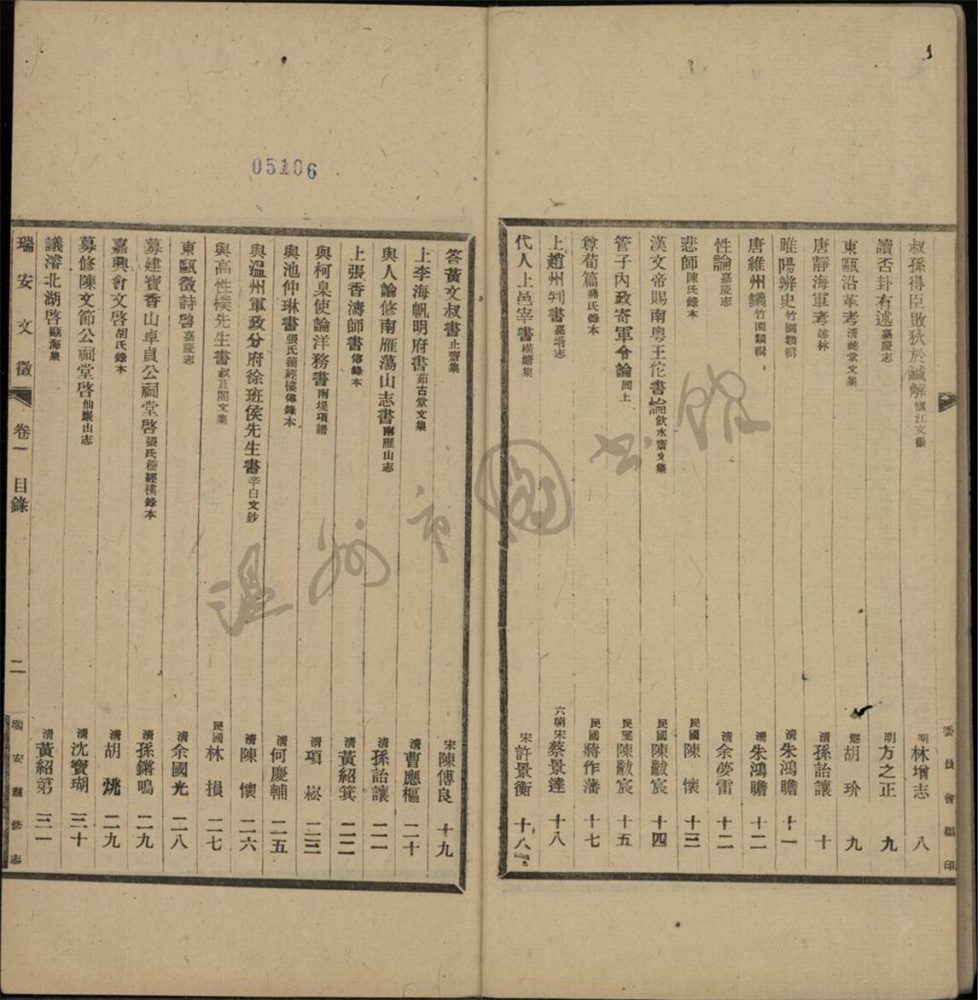 委員會編印
叔孫得臣敗狄於鹹解慎江文徵 明林增志 八
讀否卦有述嘉慶志 明方之正 九
東甌沿革考清綺堂文集 胡玠 九
唐靜海軍考述林 清孫詒讓 十
睢陽辨史竹園類輯 清朱鴻瞻 十一
唐維州議竹園類輯 清朱鴻瞻 十二
性論嘉慶志 清余夢雷 十二
悲師陳氏錄本 民國陳懷 十三
漢文帝賜南粵王佗書論飲水齋文集 民國陳黻宸 十四
管子內政寄軍令論同上 民國陳黻宸 十五
尊荀篇蔣氏錄本 民國蔣作藩 十七
上趙州判書嘉靖志 六朝宋蔡景達 十八
代人上邑宰書橫塘集 宋許景衡 十八
05106
答黃文叔書止齋集 宋陳傅良 十九
上李海帆明府書茹古堂文集 清曹應樞 二十
與人論修南雁蕩山志書南雁山志 清孫詒讓 二一
上張香濤師書傳錄本 清黃紹箕 二二
與柯臬使論洋務書南堤項譜 清項崧 二三
與池仲琳書張氏藉經樓傳錄本 清何慶輔 二五
與溫州軍政分府徐班侯先生書辛白文鈔 清陳懷 二六
與高性樸先生書叔苴閣文集 民國林損 二七
東甌徵詩啓嘉慶志 清余國光 二八
募建寶香山卓貞公祠堂啓張氏藉經樓錄本 清孫鏘鳴 二九
嘉興會文啓胡氏錄本 清胡 二九
募修陳文節公祠堂啓仙巖山志 清沈寶瑚 三十
議濬北湖啓甌海集 清黃紹第 三一
瑞安文徵 卷一 目錄 二 瑞安縣修志
溫州市圖書館